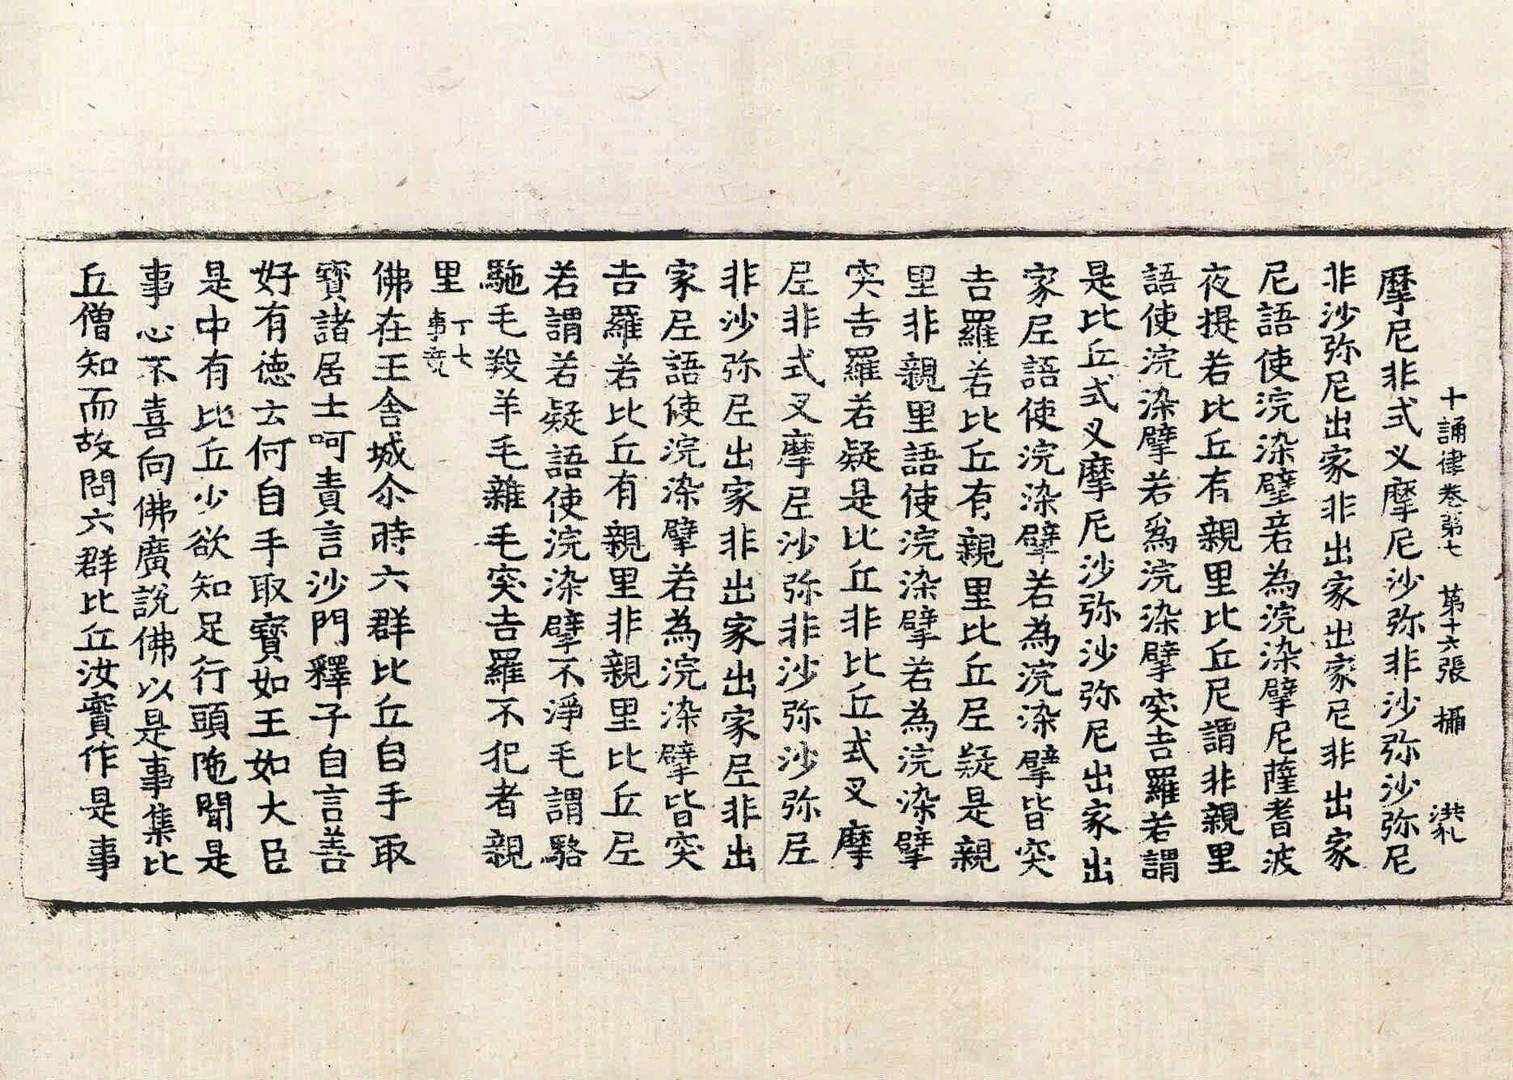 十誦律卷第七　第十六張　攝　洪札
摩尼非式叉摩尼沙弥非沙弥沙弥尼
非沙弥尼出家非出家出家尼非出家
尼語使浣染擘若為浣染擘尼薩耆波
夜提若比丘有親里比丘尼謂非親里
語使浣染擘若為浣染擘突吉羅若謂
是比丘式叉摩尼沙弥沙弥尼出家出
家尼語使浣染擘若為浣染擘皆突
吉羅若比丘有親里比丘尼疑是親
里非親里語使浣染擘若為浣染擘
突吉羅若疑是比丘非比丘式叉摩
尼非式叉摩尼沙弥非沙弥沙弥尼
非沙弥尼出家非出家出家尼非出
家尼語使浣染擘若為浣染擘皆突
吉羅若比丘有親里非親里比丘尼
若謂若疑語使浣染擘不淨毛謂駱
駞毛羖羊毛雜毛突吉羅不犯者親
里 十七事竟
佛在王舍城尒時六群比丘自手取
寶諸居士呵責言沙門釋子自言善
好有德云何自手取寶如王如大臣
是中有比丘少欲知足行頭陁聞是
事心不喜向佛廣說佛以是事集比
丘僧知而故問六群比丘汝實作是事